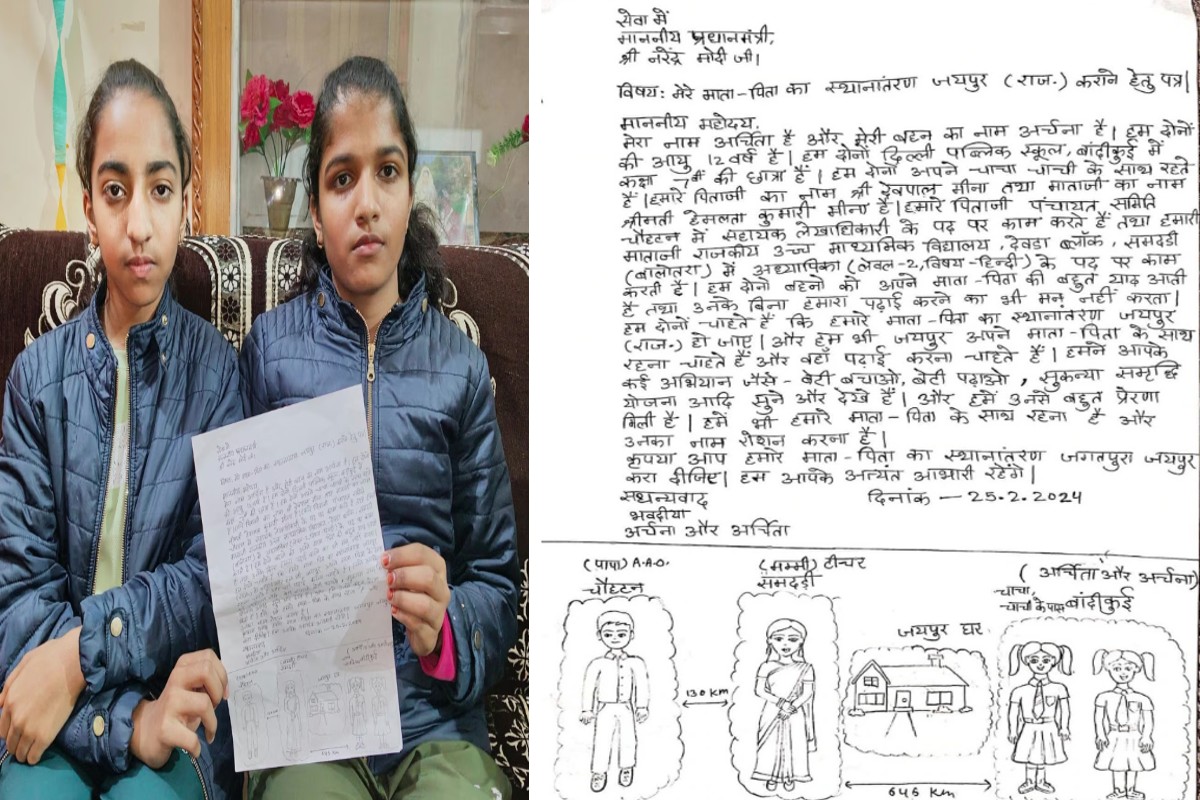 सेवा में
माननीय प्रधानमंत्री,
श्री नरेंद्र मोदी जी।
विषय: मेरे माता-पिता का स्थानांतरण जयपुर (राज.) कराने हेतु पत्र।
माननीय महोदय,
मेरा नाम अर्चिता है और मेरी बहन का नाम अर्चना है। हम दोनों
की आयु 12 वर्ष है। हम दोनों दिल्ली पब्लिक स्कूल, बांदीकुई में
कक्षा 7वीं की छात्रा हैं। हम दोनों अपने चाचा चाची के साथ रहते
हैं। हमारे पिताजी का नाम श्री देवपाल मीना तथा माताजी का नाम
श्रीमती हेमलता कुमारी मीना है। हमारे पिताजी पंचायत समिति
चौहटन में सहायक लेखाधिकारी के पद पर काम करते हैं तथा हमारी
माताजी राजकीय उच्च माध्यमिक विद्यालय, देवडा ब्लॉक, समदडी
(बालोतरा) में अध्यापिका (लेवल-2, विषय-हिन्दी) के पद पर काम
करती हैं। हम दोनो बहनो को अपने माता-पिता की बहुत याद आती
है तथा उनके बिना हमारा पढ़ाई करने का भी मन नहीं करता।
हम दोनों चाहते हैं कि हमारे माता-पिता का स्थानांतरण जयपुर
(राज.) हो जाए। और हम भी जयपुर अपने माता-पिता के साथ
रहना चाहते हैं और वहाँ पढ़ाई करना चाहते हैं। हमने आपके
कई अभियान जैसे- बेटी बचाओ, बेटी पढ़ाओ, सुकन्या समृद्धि
योजना आदि सुने और देखे हैं। और हमें उनसे बहुत प्रेरणा
मिली है। हमें भी हमारे माता-पिता के साथ रहना है और
उनका नाम रोशन करना है।
कृपया आप हमारे माता-पिता का स्थानांतरण जगतपुरा जयपुर
करा दीजिए। हम आपके अत्यंत आभारी रहेंगे।
सधन्यवाद दिनांक - 25.2.2024
भवदीया
अर्चना और अर्चिता
(पापा) A.A.O. (मम्मी) टीचर (अर्चिता और अर्चना)
चौहटन समदड़ी चाचा,
चाची के पास बांदीकुई
जयपुर घर
130 km
646 km